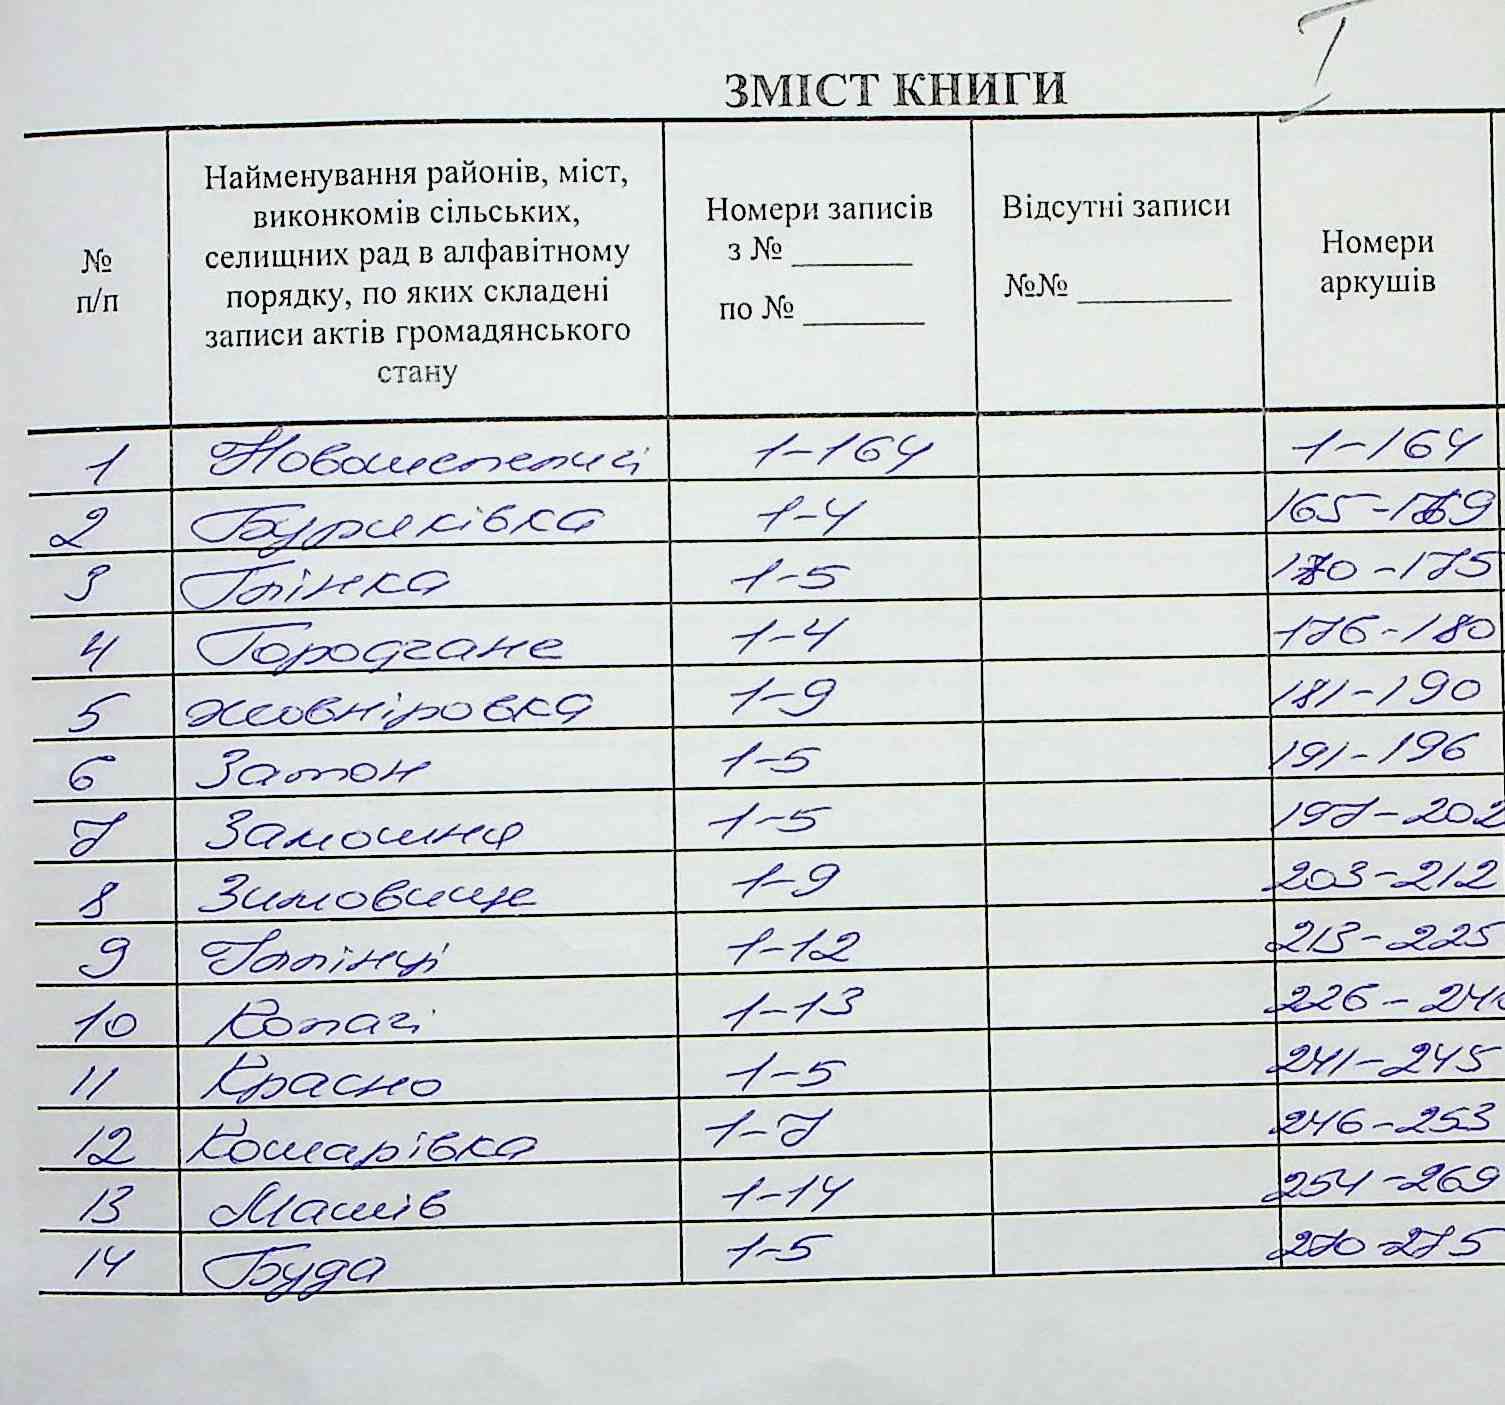 I
ЗМІСТ КНИГИ
№
п/п
Найменування районів, міст,
виконкомів сільських,
селищних рад в алфавітному
порядку, по яких складені
записи актів громадянського
стану
Номери записів
з № ________
по № ________
Відсутні записи
№№ __________
Номери
аркушів
1 Новошепеличі 1-164 1-164
2 Буряківка 1-4 165-169
3 Глінка 1-5 170-175
4 Городчане 1-4 176-180
5 Жовніровка 1-9 181-190
6 Затон 1-5 191-196
7 Замошня 1-5 197-202
8 Зимовище 1-9 203-212
9 Іллінці 1-12 213-225
10 Копачі 1-13 226-
11 Красно 1-5 241-245
12 Кошарівка 1-7 246-253
13 Машів 1-14 254-269
14 Буда 1-5 270-275